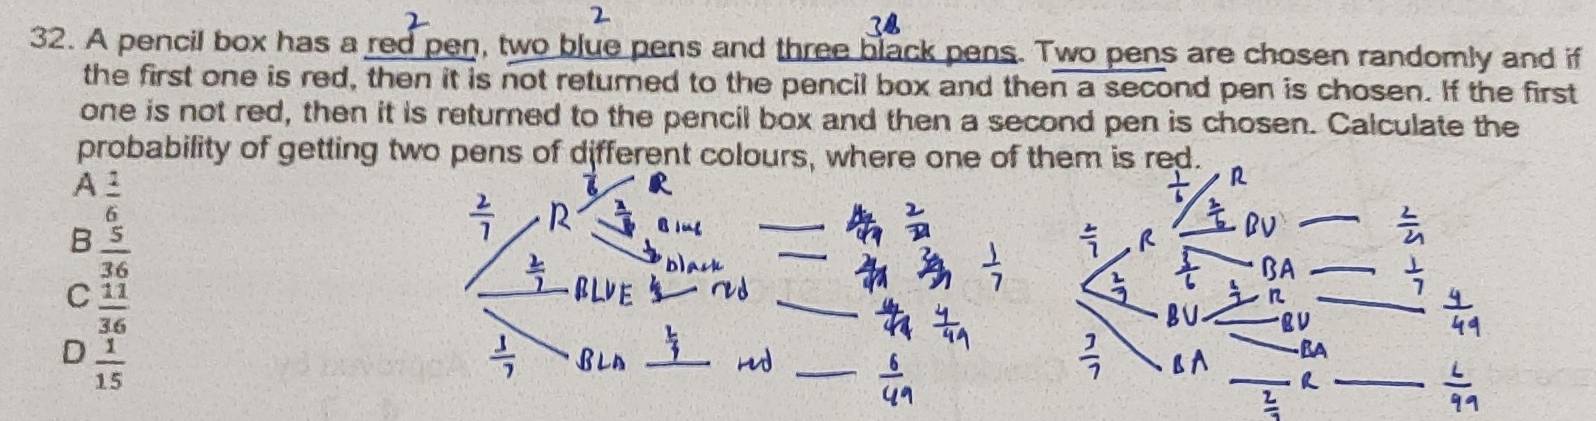 2 2 3
32. A pencil box has a red pen, two blue pens and three black pens. Two pens are chosen randomly and if
the first one is red, then it is not returned to the pencil box and then a second pen is chosen. If the first
one is not red, then it is returned to the pencil box and then a second pen is chosen. Calculate the
probability of getting two pens of different colours, where one of them is red.
A 1/6
B 5/36
C 11/36
D 1/15
1/6 R 1/6 R
2/7 R Blue 2/21 2/7 R 2/6 BU 2/21
black 1/7 3/6 BA 1/7
2/7 BLUE red 4/49 2/7 BU 2/7 R 4/49
BU
BA
3/7 BLA red 6/49 3/7 BA 2/7 R 6/49